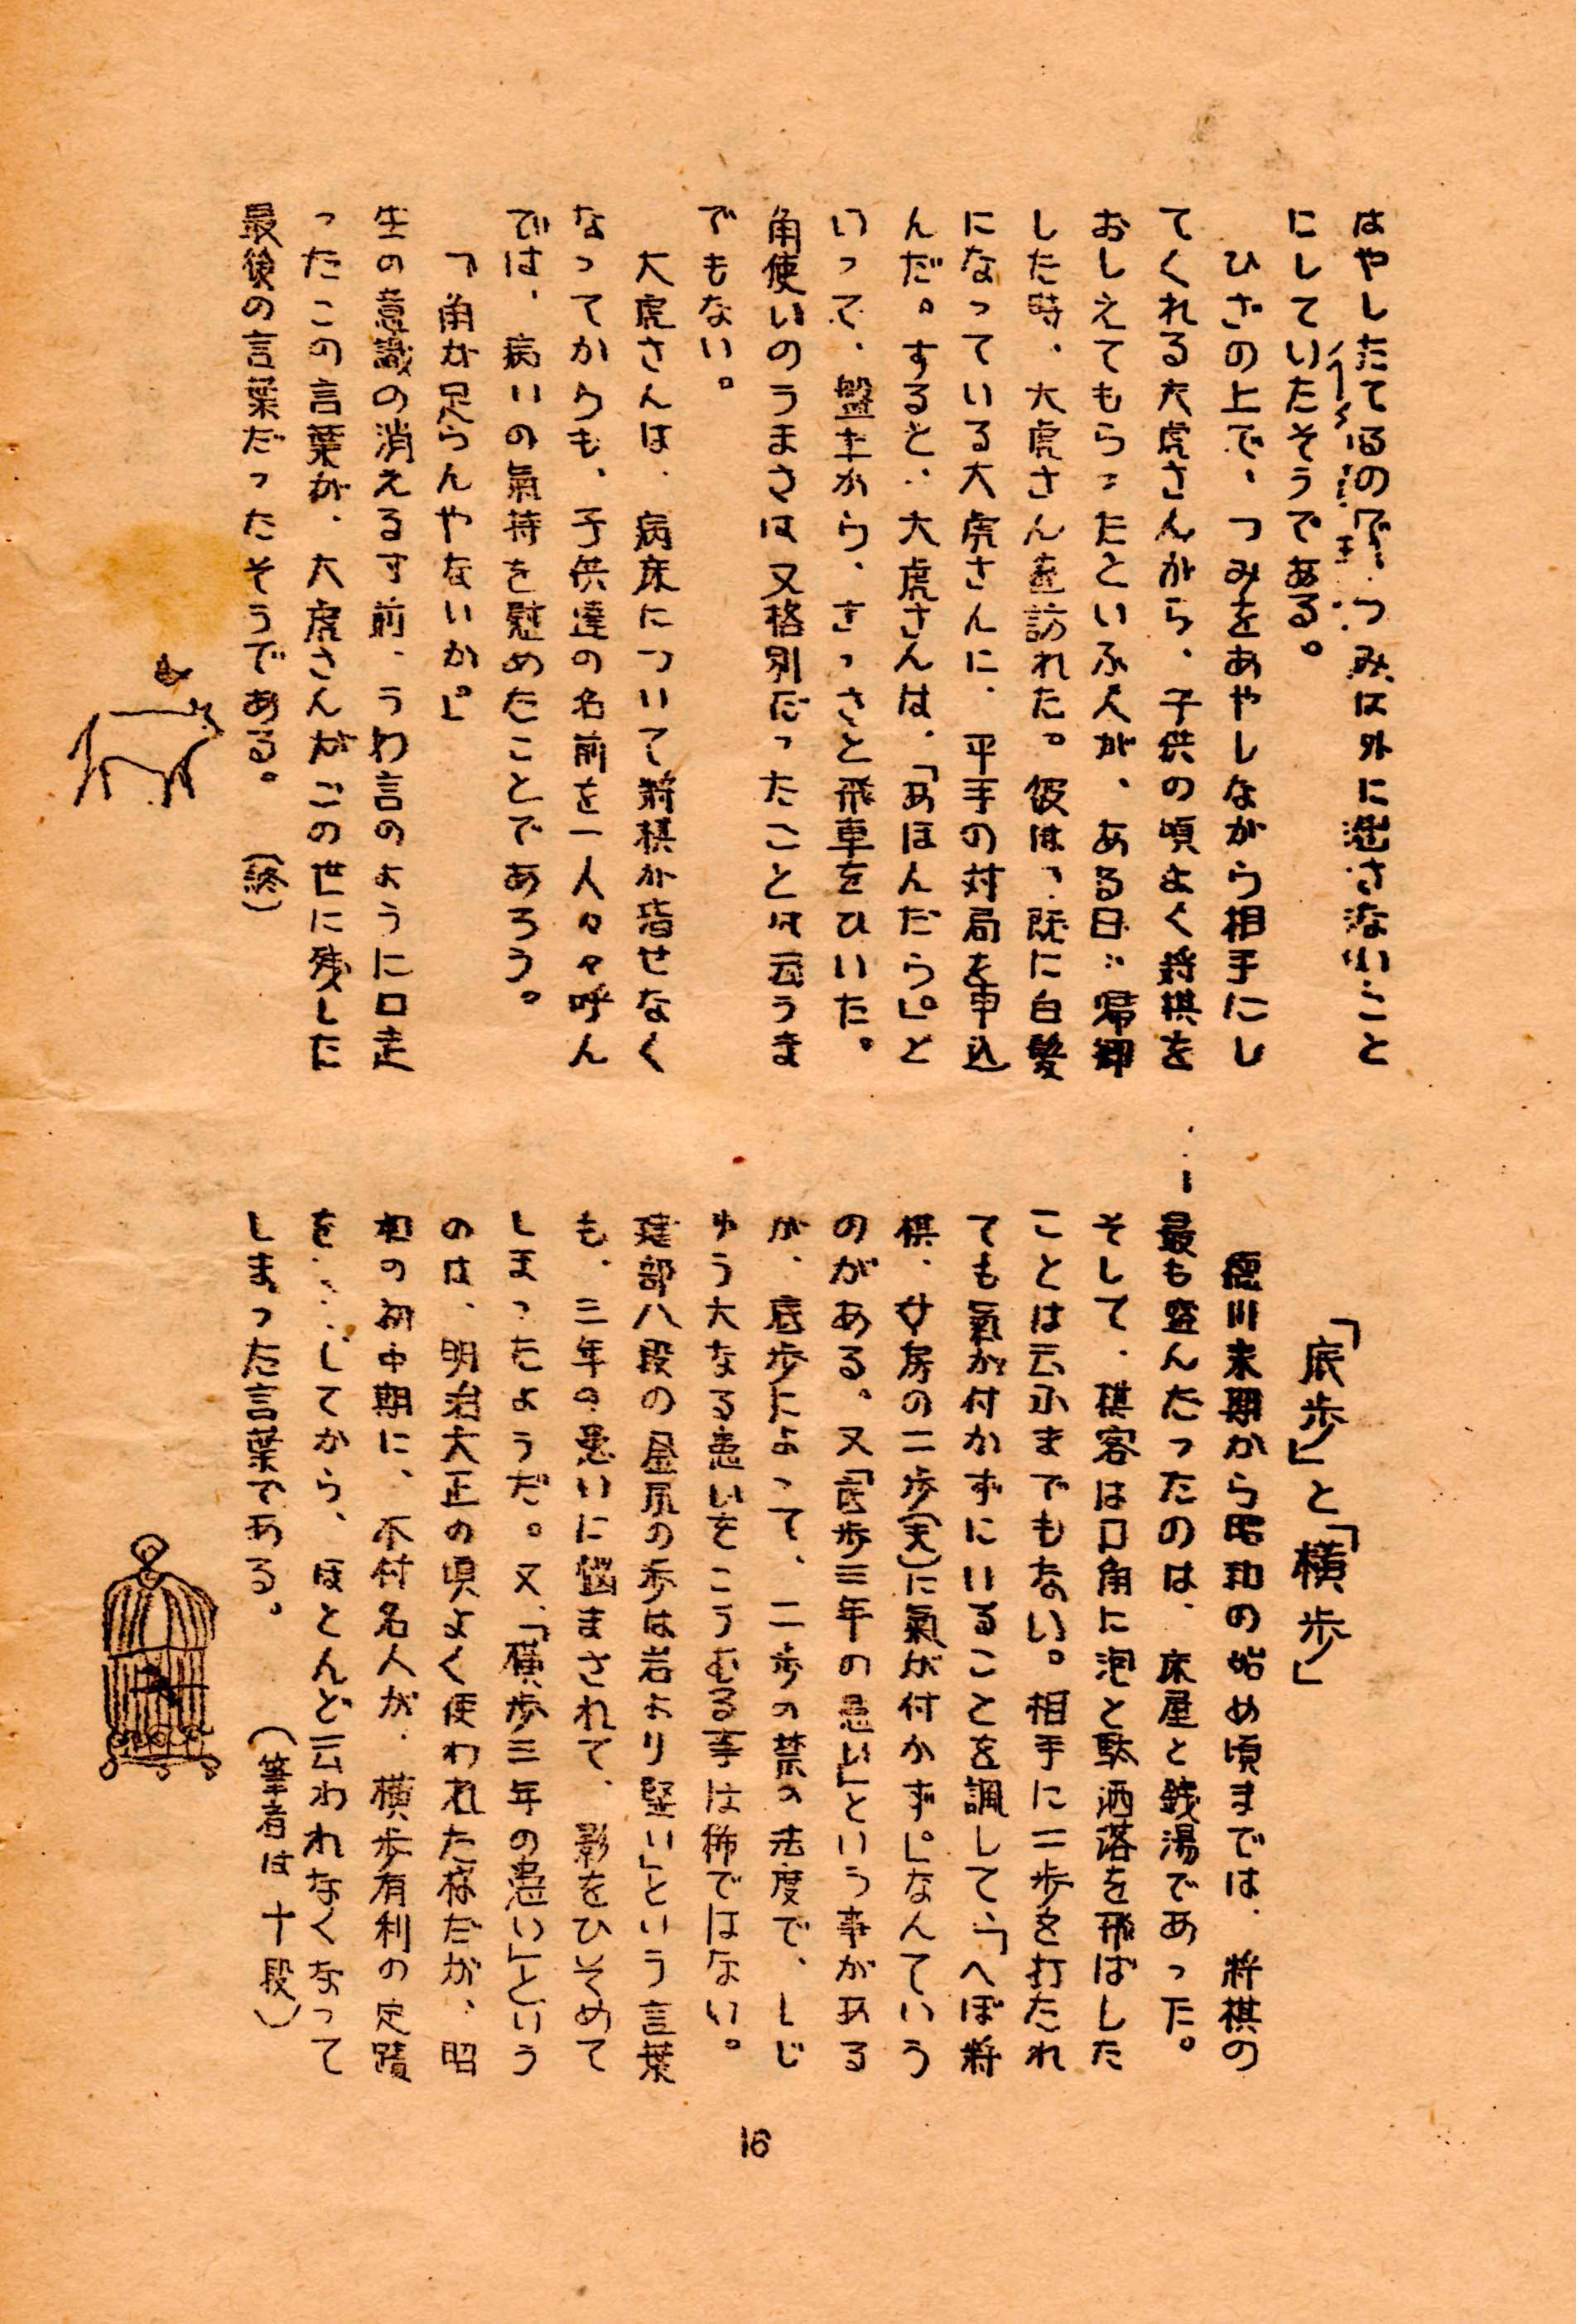 はやしたてるので、つみは外に出さないこと
にしていたそうである。
ひざの上で、つみをあやしながら相手にし
てくれる大虎さんから、子供の頃よく将棋を
おしえてもらったといふ人が、ある日、帰郷
した時、大虎さんを訪れた。彼は、既に白髪
になっている大虎さんに、平手の対局を申込
んだ。すると、大虎さんは、「あほんだら。」と
いって、盤上から、さっさと飛車をひいた。
角使いのうまさは又格別だったことは云うま
でもない。
大虎さんは、病床について将棋が指せなく
なってからも、子供達の名前を一人々々呼ん
では、病いの氣持を慰めたことであろう。
「角が足らんやないか。」
生の意識の消えるす前、うわ言のように口走
ったこの言葉が、大虎さんがこの世に残した
最後の言葉だったそうである。 (終)
「底歩」と「横歩」
徳川末期から昭和の始め頃までは、将棋の
最も盛んだったのは、床屋と銭湯であった。
そして、棋客は口角に泡と駄洒落を飛ばした
ことは云ふまでもない。相手に二歩を打たれ
ても氣が付かずにいることを諷して、「へぼ将
棋、女房の二歩(夫)に氣が付かず。」なんていう
のがある。又「底歩三年の患い」という事がある
が、底歩によって、二歩の禁の法度で、しじ
ゅう大なる患いをこうむる事は稀ではない。
建部八段の屋尻の歩は岩より堅い」という言葉
も、三年の患いに悩まされて、影をひそめて
しまったようだ。又、「横歩三年の患い」という
のは、明治大正の頃よく使われた様だが、昭
和の初中期に、木村名人が、横歩有利の定蹟
を してから、ほとんど云われなくなって
しまった言葉である。 (筆者は 十段)
16